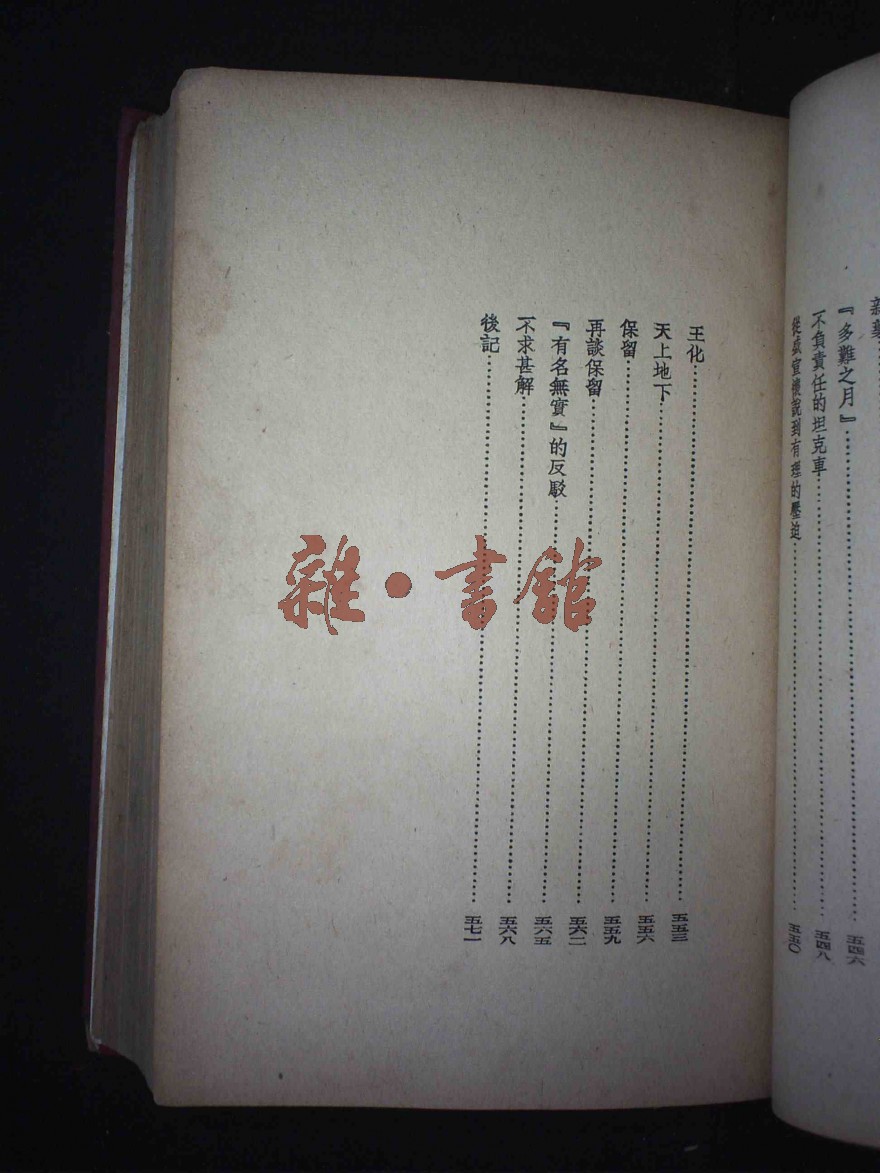 『多難之月』……五四六
不負責任的坦克車……五四八
從盛宣懷說到有理的壓迫……五五〇
王化……五五三
天上地下……五五六
保留……五五九
再談保留……五六二
『有名無實』的反駁……五六五
不求甚解……五六八
後記……五七一
雜·書館